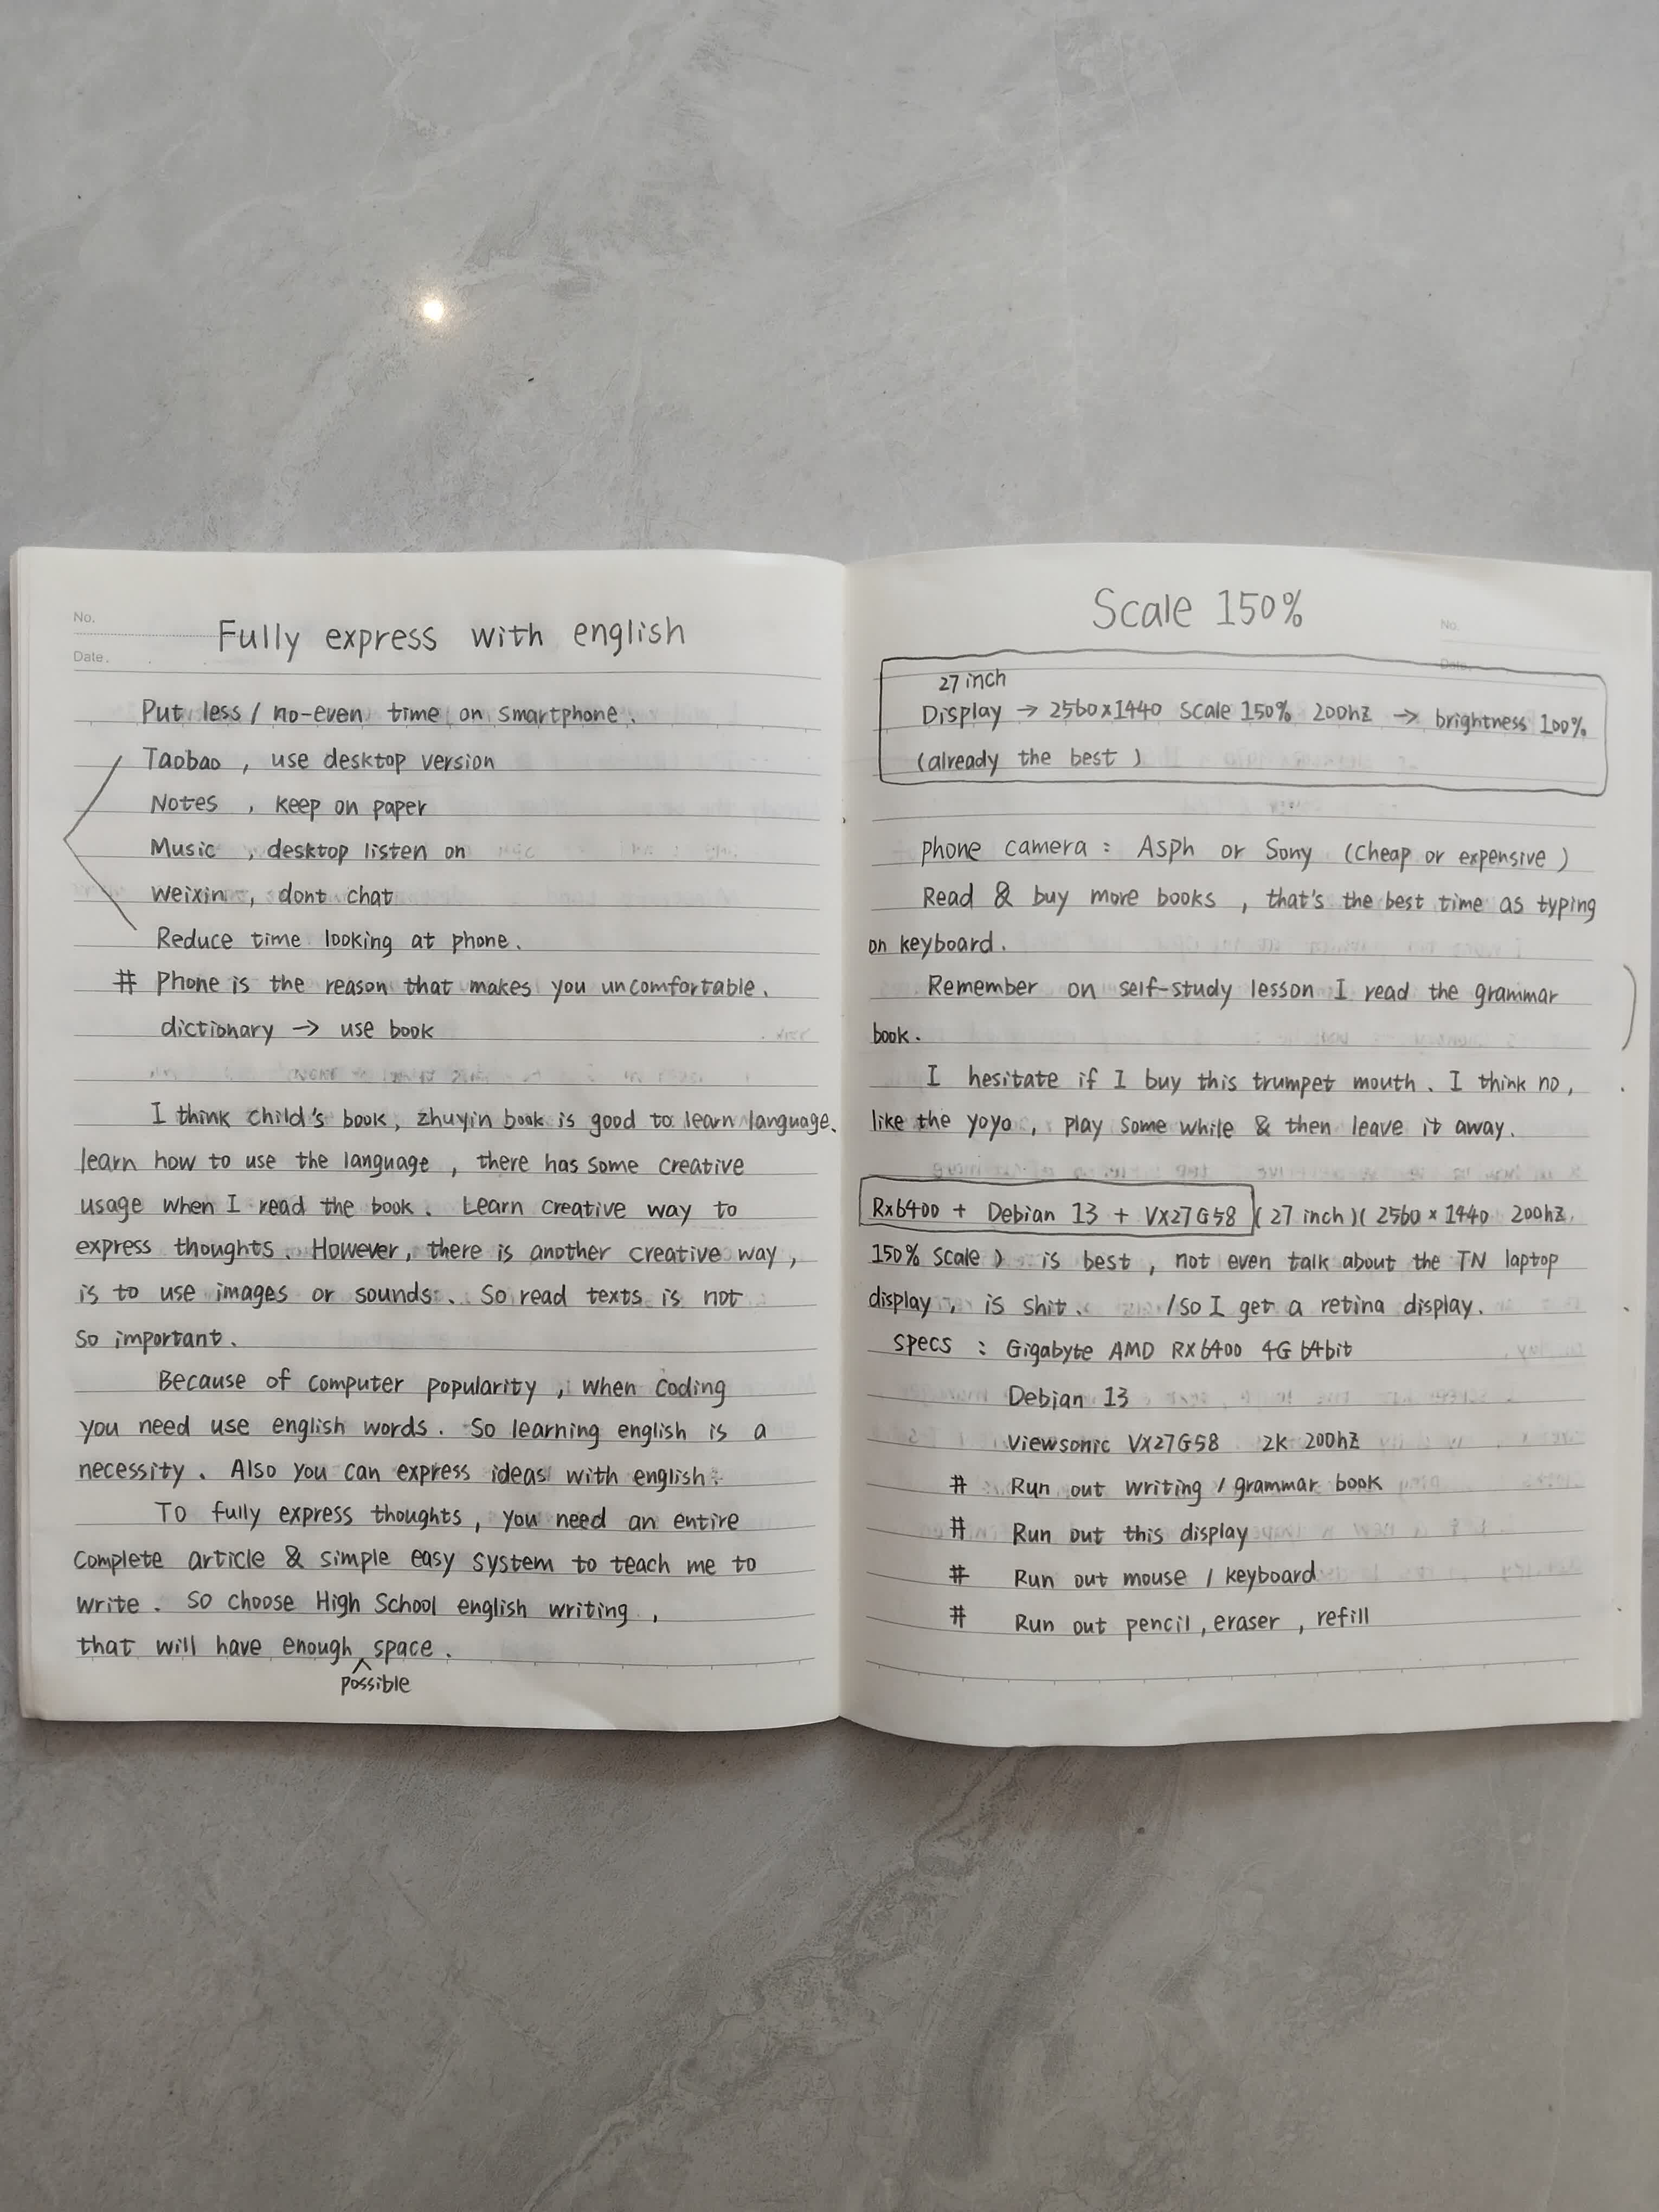 No.
Date.
Fully express with english
Put less / no-even time on smartphone.
Taobao , use desktop version
Notes , keep on paper
Music , desktop listen on
weixin , dont chat
Reduce time looking at phone.
# Phone is the reason that makes you uncomfortable.
dictionary → use book
I think child's book, zhuyin book is good to learn language.
learn how to use the language , there has some creative
usage when I read the book. Learn creative way to
express thoughts. However, there is another creative way,
is to use images or sounds. So read texts is not
so important.
Because of computer popularity , when coding
you need use english words. So learning english is a
necessity. Also you can express ideas with english.
To fully express thoughts, you need an entire
complete article & simple easy system to teach me to
write. So choose High School english writing,
that will have enough ^ space.
possible
Scale 150%
No.
Date.
27 inch
Display → 2560x1440 scale 150% 200hz → brightness 100%
(already the best )
phone camera : Asph or Sony (cheap or expensive )
Read & buy more books , that's the best time as typing
on keyboard.
Remember on self-study lesson I read the grammar
book.
I hesitate if I buy this trumpet mouth. I think no,
like the yoyo , play some while & then leave it away.
Rx6400 + Debian 13 + VX27G58 (27 inch)( 2560 × 1440 200hz
150% scale ) is best , not even talk about the TN laptop
display , is shit. /so I get a retina display.
specs : Gigabyte AMD RX6400 4G 64bit
Debian 13
Viewsonic VX27G58 2K 200hz
# Run out writing / grammar book
# Run out this display
# Run out mouse / keyboard
# Run out pencil, eraser , refill